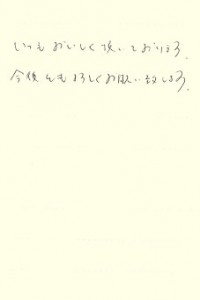 いつもおいしく頂いております。
今後ともよろしくお願い致します。